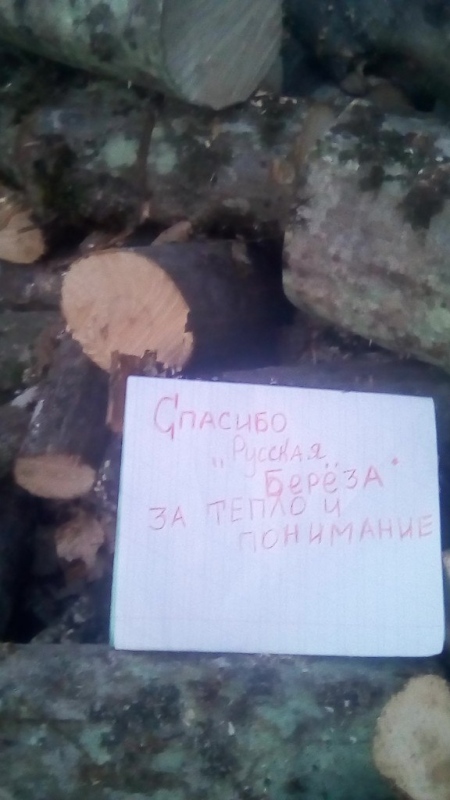 Спасибо
„Русская
Берёза"
за тепло и
понимание